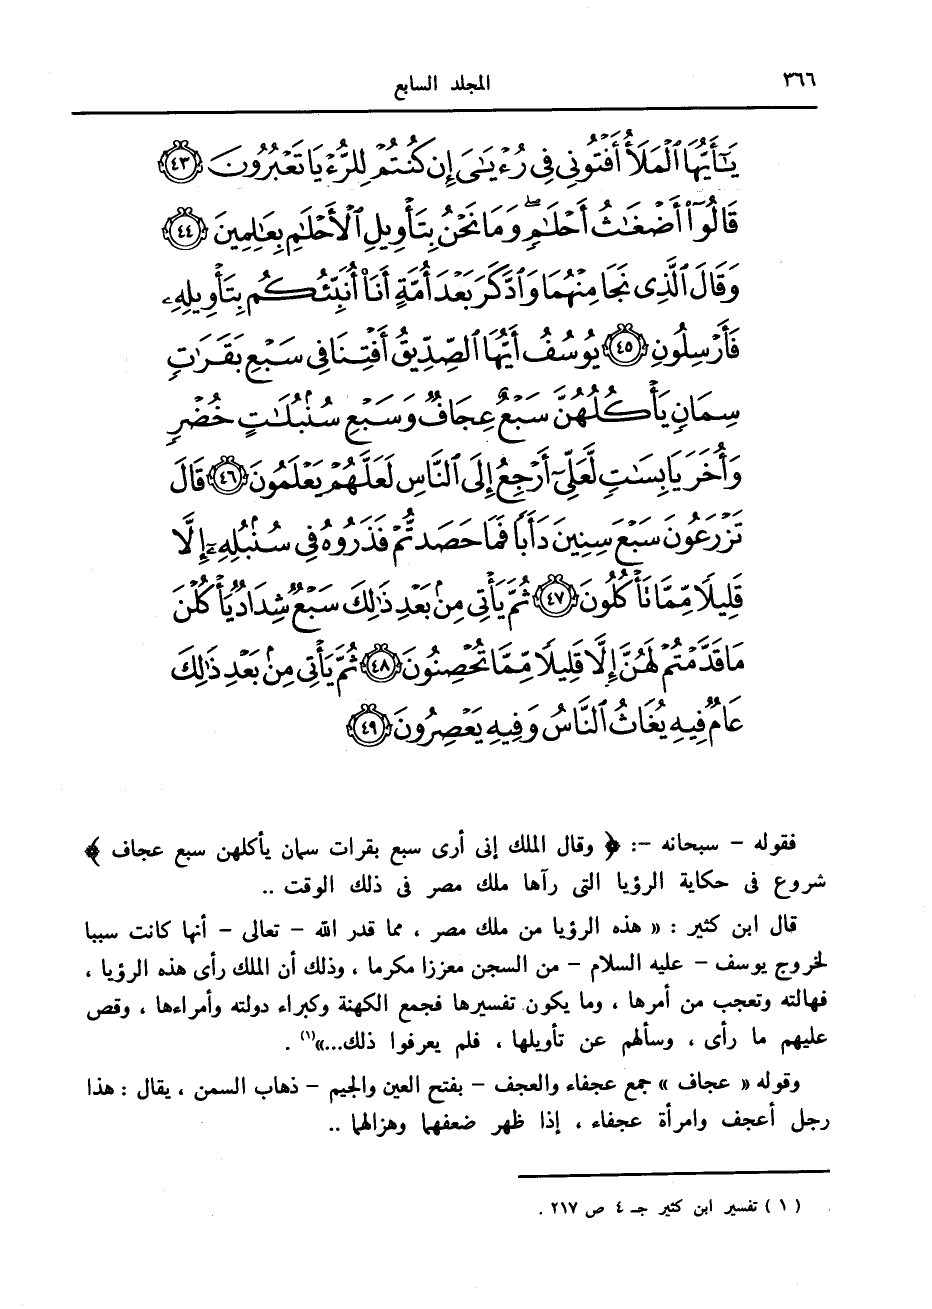 ٣٦٦
المجلد السابع
يَـٰٓأَيُّهَا ٱلْمَلَأُ أَفْتُونِى فِى رُءْيَـٰىَ إِن كُنتُمْ لِلرُّءْيَا تَعْبُرُونَ ﴿٤٣﴾
قَالُوٓا۟ أَضْغَـٰثُ أَحْلَـٰمٍۢ ۖ وَمَا نَحْنُ بِتَأْوِيلِ ٱلْأَحْلَـٰمِ بِعَـٰلِمِينَ ﴿٤٤﴾
وَقَالَ ٱلَّذِى نَجَا مِنْهُمَا وَٱدَّكَرَ بَعْدَ أُمَّةٍ أَنَا۠ أُنَبِّئُكُم بِتَأْوِيلِهِۦ
فَأَرْسِلُونِ ﴿٤٥﴾ يُوسُفُ أَيُّهَا ٱلصِّدِّيقُ أَفْتِنَا فِى سَبْعِ بَقَرَٰتٍۢ
سِمَانٍۢ يَأْكُلُهُنَّ سَبْعٌ عِجَافٌۭ وَسَبْعِ سُنۢبُلَـٰتٍ خُضْرٍۢ
وَأُخَرَ يَابِسَـٰتٍۢ لَّعَلِّىٓ أَرْجِعُ إِلَى ٱلنَّاسِ لَعَلَّهُمْ يَعْلَمُونَ ﴿٤٦﴾ قَالَ
تَزْرَعُونَ سَبْعَ سِنِينَ دَأَبًۭا فَمَا حَصَدتُّمْ فَذَرُوهُ فِى سُنۢبُلِهِۦٓ إِلَّا
قَلِيلًۭا مِّمَّا تَأْكُلُونَ ﴿٤٧﴾ ثُمَّ يَأْتِى مِنۢ بَعْدِ ذَٰلِكَ سَبْعٌۭ شِدَادٌۭ يَأْكُلْنَ
مَا قَدَّمْتُمْ لَهُنَّ إِلَّا قَلِيلًۭا مِّمَّا تُحْصِنُونَ ﴿٤٨﴾ ثُمَّ يَأْتِى مِنۢ بَعْدِ ذَٰلِكَ
عَامٌۭ فِيهِ يُغَاثُ ٱلنَّاسُ وَفِيهِ يَعْصِرُونَ ﴿٤٩﴾
فقوله – سبحانه –: ﴿ وقال الملك إنى أرى سبع بقرات سمان يأكلهن سبع عجاف ﴾
شروع فى حكاية الرؤيا التى رآها ملك مصر فى ذلك الوقت ..
قال ابن كثير : « هذه الرؤيا من ملك مصر ، مما قدر الله – تعالى – أنها كانت سببا
لخروج يوسف – عليه السلام – من السجن معززا مكرما ، وذلك أن الملك رأى هذه الرؤيا ،
فهالته وتعجب من أمرها ، وما يكون تفسيرها فجمع الكهنة وكبراء دولته وأمراءها ، وقص
عليهم ما رأى ، وسألهم عن تأويلها ، فلم يعرفوا ذلك...»(١) .
وقوله « عجاف » جمع عجفاء والعجف – بفتح العين والجيم – ذهاب السمن ، يقال : هذا
رجل أعجف وامرأة عجفاء ، إذا ظهر ضعفهما وهزالهما ..
( ١ ) تفسير ابن كثير جـ ٤ ص ٢١٧ .